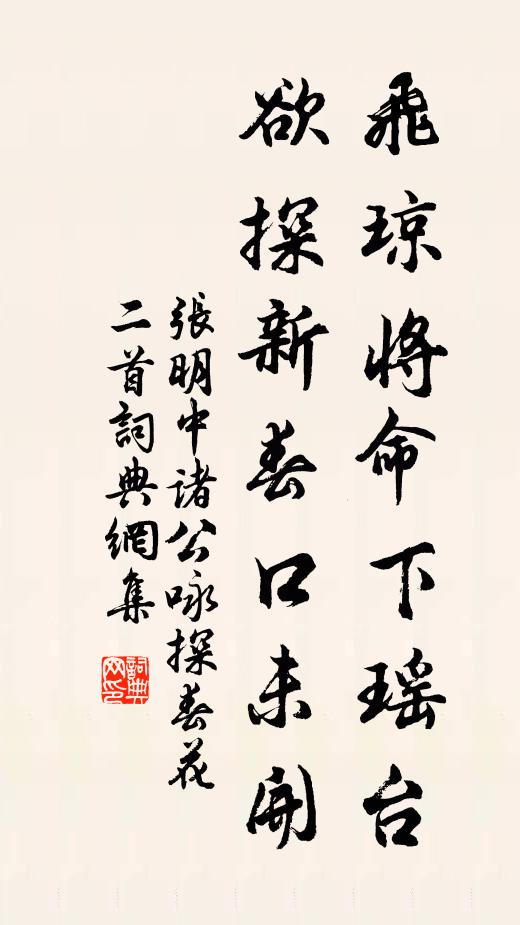 飛琼將命下瑶台
欲探新春口未開
張明中諸公咏探春花
二首詞典網集
詞典網印